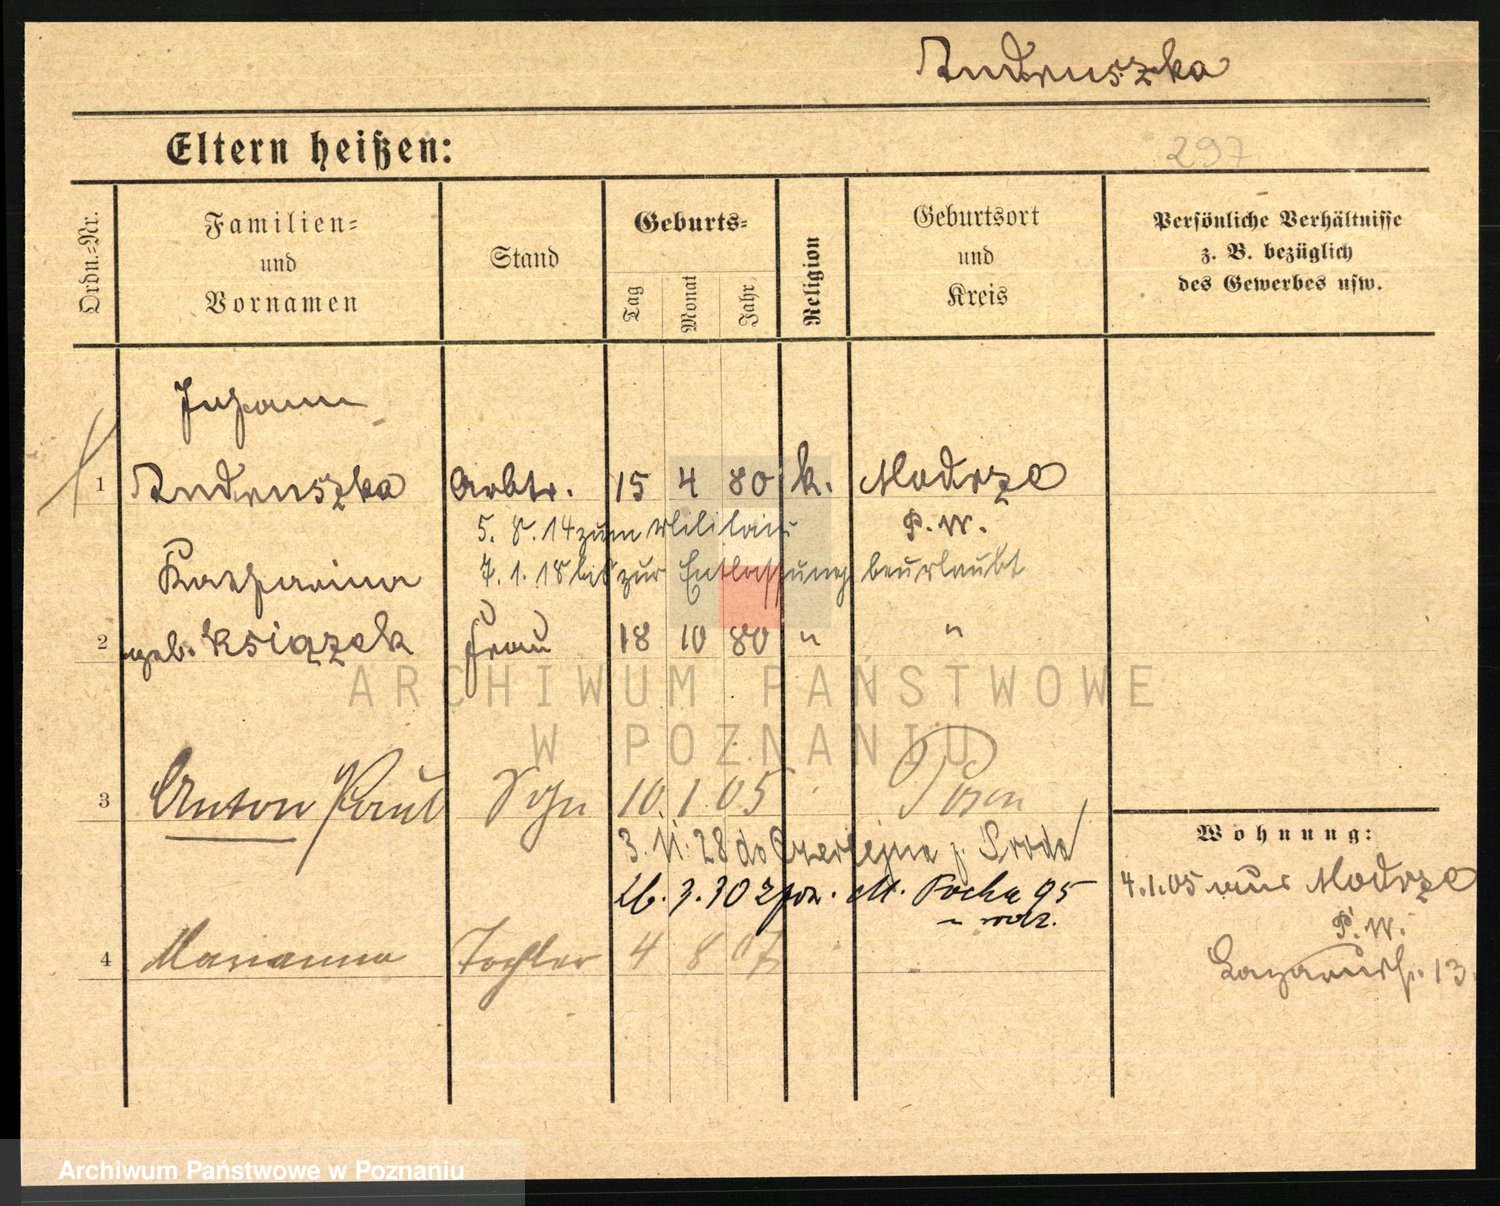 Andruszka
Eltern heißen:
297
Ordn.-Nr.
Familien-
und
Vornamen
Stand
Geburts-
Tag
Monat
Jahr
Religion
Geburtsort
und
Kreis
Persönliche Verhältnisse
z. B. bezüglich
des Gewerbes usw.
Johann
1 Andruszka Arbtr. 15 4 80 k. Modrze
5. 8. 14 zum Militair P. W.
Katharina 7. 1. 18 bis zur Entlassung beurlaubt
2 geb. Książek Frau 18 10 80 " "
ARCHIWUM PAŃSTWOWE
W POZNANIU
3 Anton Paul Sohn 10. 1. 05 Posen
3. 11. 28 do Czerlejna p. Środa
Wohnung:
26. 3. 30 z pow. M. Focha 95
z rodz.
4. 1. 05 aus Modrze
P. W.
4 Marianna Tochter 4 8 07
Lazarusstr. 13.
Archiwum Państwowe w Poznaniu